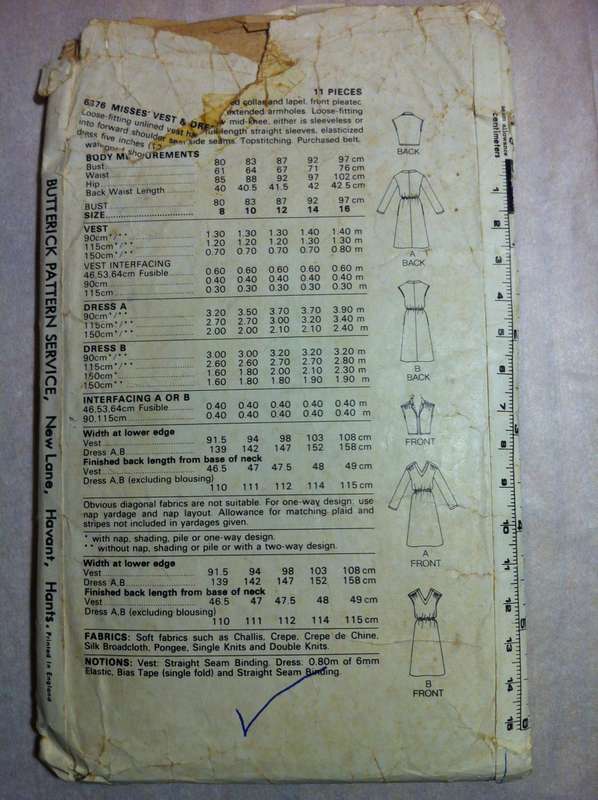 11 PIECES
6376 MISSES' VEST & DRE ed collar and lapel, front pleated
Loose-fitting unlined vest ha extended armholes. Loose-fitting
into forward shoulder mid-knee, either is sleeveless or
dress five inches (12 full-length straight sleeves, elasticized
side seams. Topstitching. Purchased belt.
BODY MEASUREMENTS
Bust 80 83 87 92 97 cm
Waist 61 64 67 71 76 cm
Hip 85 88 92 97 102 cm
Back Waist Length 40 40.5 41.5 42 42.5 cm
BUST 80 83 87 92 97 cm
SIZE 8 10 12 14 16
VEST
90cm*/** 1.30 1.30 1.30 1.40 1.40 m
115cm*/** 1.20 1.20 1.20 1.30 1.30 m
150cm*/** 0.70 0.70 0.70 0.70 0.80 m
VEST INTERFACING
46,53,64cm Fusible 0.60 0.60 0.60 0.60 0.60 m
90cm 0.40 0.40 0.40 0.40 0.40 m
115cm 0.30 0.30 0.30 0.30 0.30 m
DRESS A
90cm*/** 3.20 3.50 3.70 3.70 3.90 m
115cm*/** 2.70 2.70 3.00 3.20 3.40 m
150cm*/** 2.00 2.00 2.10 2.10 2.40 m
DRESS B
90cm*/** 3.00 3.00 3.20 3.20 3.20 m
115cm*/** 2.60 2.60 2.70 2.70 2.80 m
150cm* 1.60 1.80 2.00 2.10 2.30 m
150cm** 1.60 1.80 1.80 1.90 1.90 m
INTERFACING A OR B
46,53,64cm Fusible 0.40 0.40 0.40 0.40 0.40 m
90,115cm 0.40 0.40 0.40 0.40 0.40 m
Width at lower edge
Vest 91.5 94 98 103 108 cm
Dress A,B 139 142 147 152 158 cm
Finished back length from base of neck
Vest 46.5 47 47.5 48 49 cm
Dress A,B (excluding blousing)
110 111 112 114 115 cm
Obvious diagonal fabrics are not suitable. For one-way design: use
nap yardage and nap layout. Allowance for matching plaid and
stripes not included in yardages given.
* with nap, shading, pile or one-way design.
** without nap, shading or pile or with a two-way design.
Width at lower edge
Vest 91.5 94 98 103 108 cm
Dress A,B 139 142 147 152 158 cm
Finished back length from base of neck
Vest 46.5 47 47.5 48 49 cm
Dress A,B (excluding blousing)
110 111 112 114 115 cm
FABRICS: Soft fabrics such as Challis, Crepe, Crepe de Chine,
Silk Broadcloth, Pongee, Single Knits and Double Knits.
NOTIONS: Vest: Straight Seam Binding. Dress: 0.80m of 6mm
Elastic, Bias Tape (single fold) and Straight Seam Binding.
BACK
A
BACK
B
BACK
FRONT
A
FRONT
B
FRONT
BUTTERICK PATTERN SERVICE, New Lane, Havant, Hants. Printed in England
seam allowance
centimeters
1
2
3
4
5
6
7
8
9
10
11
12
13
14
15